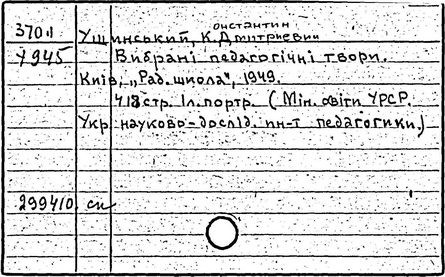 онстантин
370.1 Ушинський, К. Дмитриевич
У945 Вибрані педагогічні твори.
Київ, „Рад. школа", 1949.
418 стр. Іл. портр. (Мін. освіти УРСР.
Укр. науково-дослід. ин-т педагогики.)
299410 сп